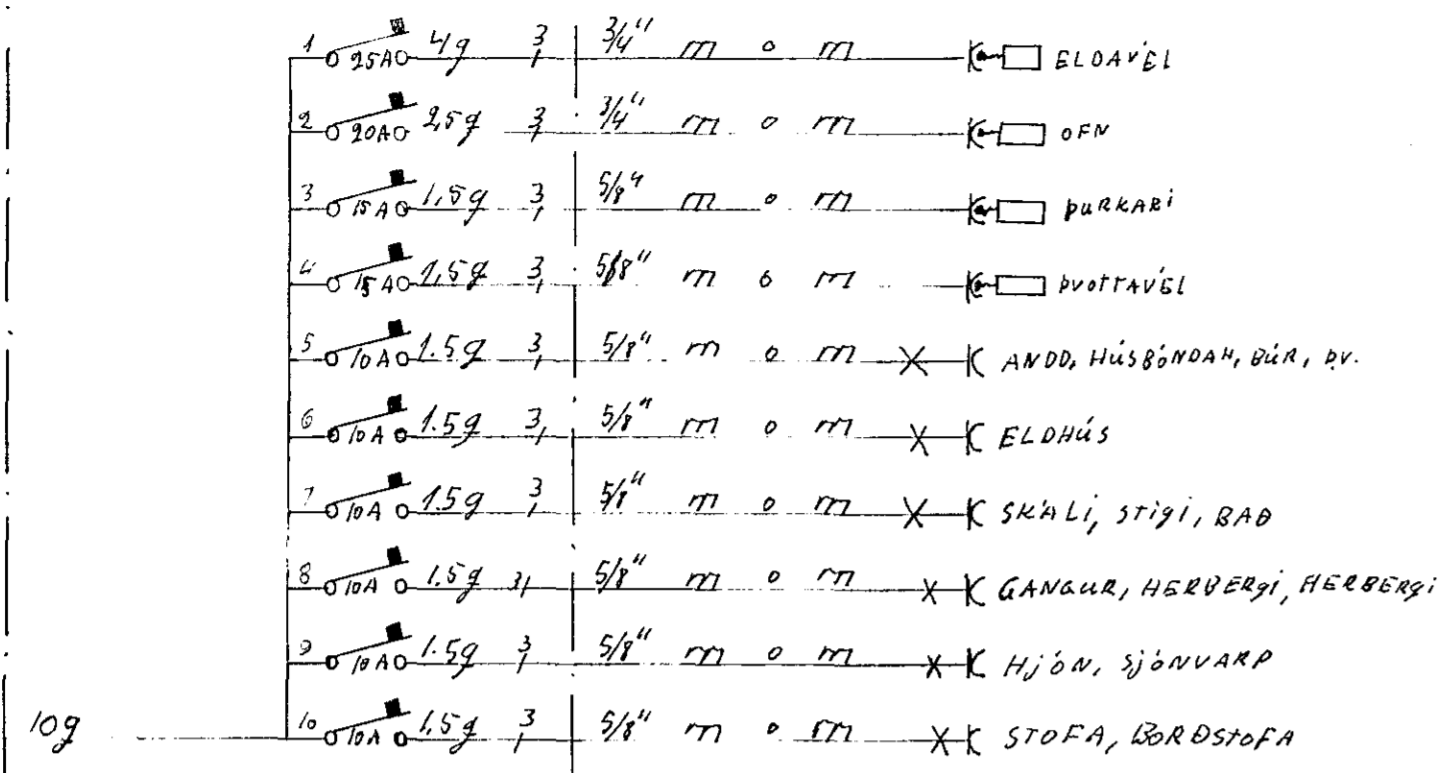 1 25A 4g 3 3/4" m o m ELDAVÉL
2 20A 2,5g 3 3/4" m o m OFN
3 15A 1,5g 3 5/8" m o m ÞURKARI
4 15A 1,5g 3 5/8" m o m ÞVOTTAVÉL
5 10A 1.5g 3 5/8" m o m ANDD, HÚSBÓNDAH, BÚR, ÞV.
6 10A 1.5g 3 5/8" m o m ELDHÚS
7 10A 1.5g 3 5/8" m o m SKÁLI, STIGI, BAÐ
8 10A 1.5g 3 5/8" m o m GANGUR, HERBERGI, HERBERGI
9 10A 1.5g 3 5/8" m o m HJÓN, SJÓNVARP
10 10A 1,5g 3 5/8" m o m STOFA, BORÐSTOFA
10g